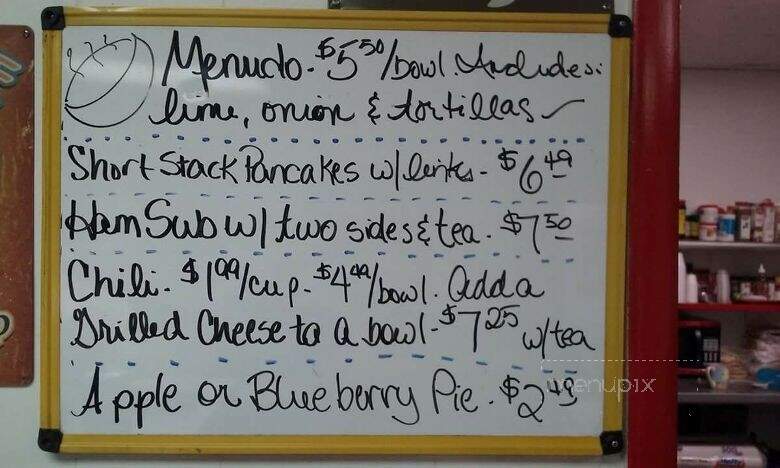 Menudo - $5.50/bowl. Includes:
lime, onion & tortillas
Short Stack Pancakes w/ links - $6.49
Ham Sub w/ two sides & tea - $7.50
Chili - $1.99/cup - $4.49/bowl. Add a
Grilled Cheese to a bowl - $7.25 w/tea
Apple or Blueberry Pie - $2.49
menupix